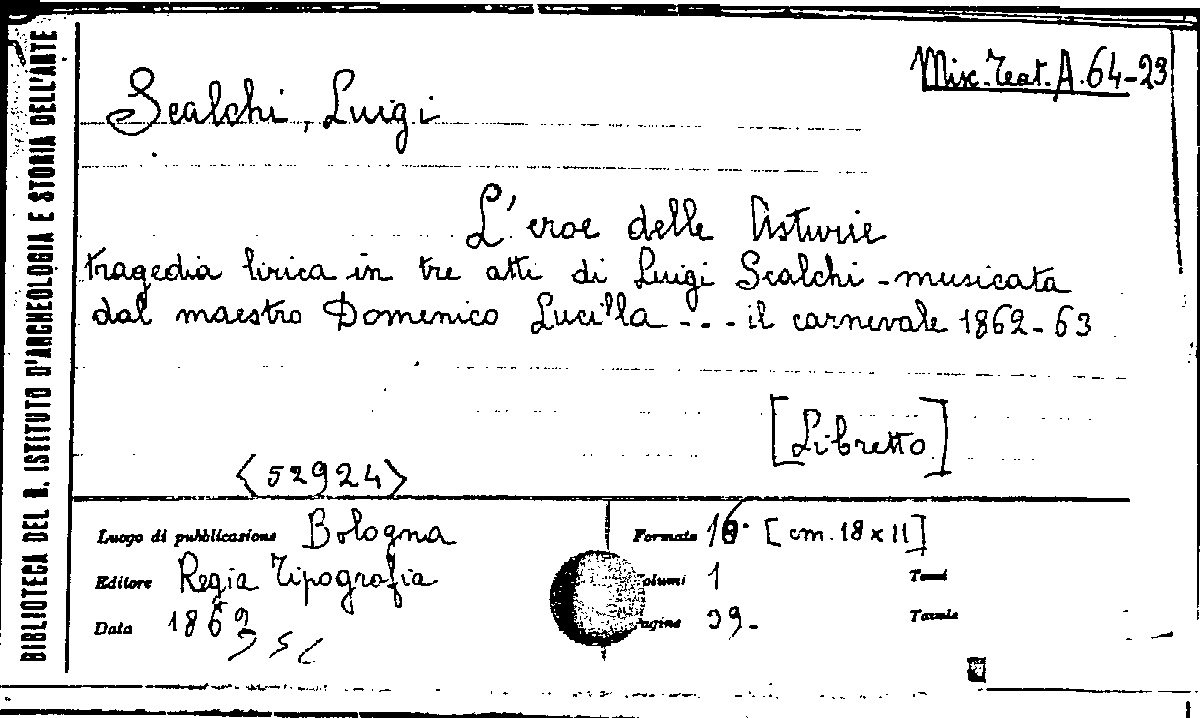 BIBLIOTECA DEL R. ISTITUTO D'ARCHEOLOGIA E STORIA DELL'ARTE
Misc. Teat. A. 64-23
Scalchi, Luigi
L'eroe delle Asturie
tragedia lirica in tre atti di Luigi Scalchi - musicata
dal maestro Domenico Lucilla --- il carnevale 1862-63
[Libretto]
<52924>
Luogo di pubblicazione Bologna
Formato 16° [cm. 18 x 11]
Editore Regia Tipografia
Volumi 1
Tomi
Data 1862
Pagine 39.
Tavole